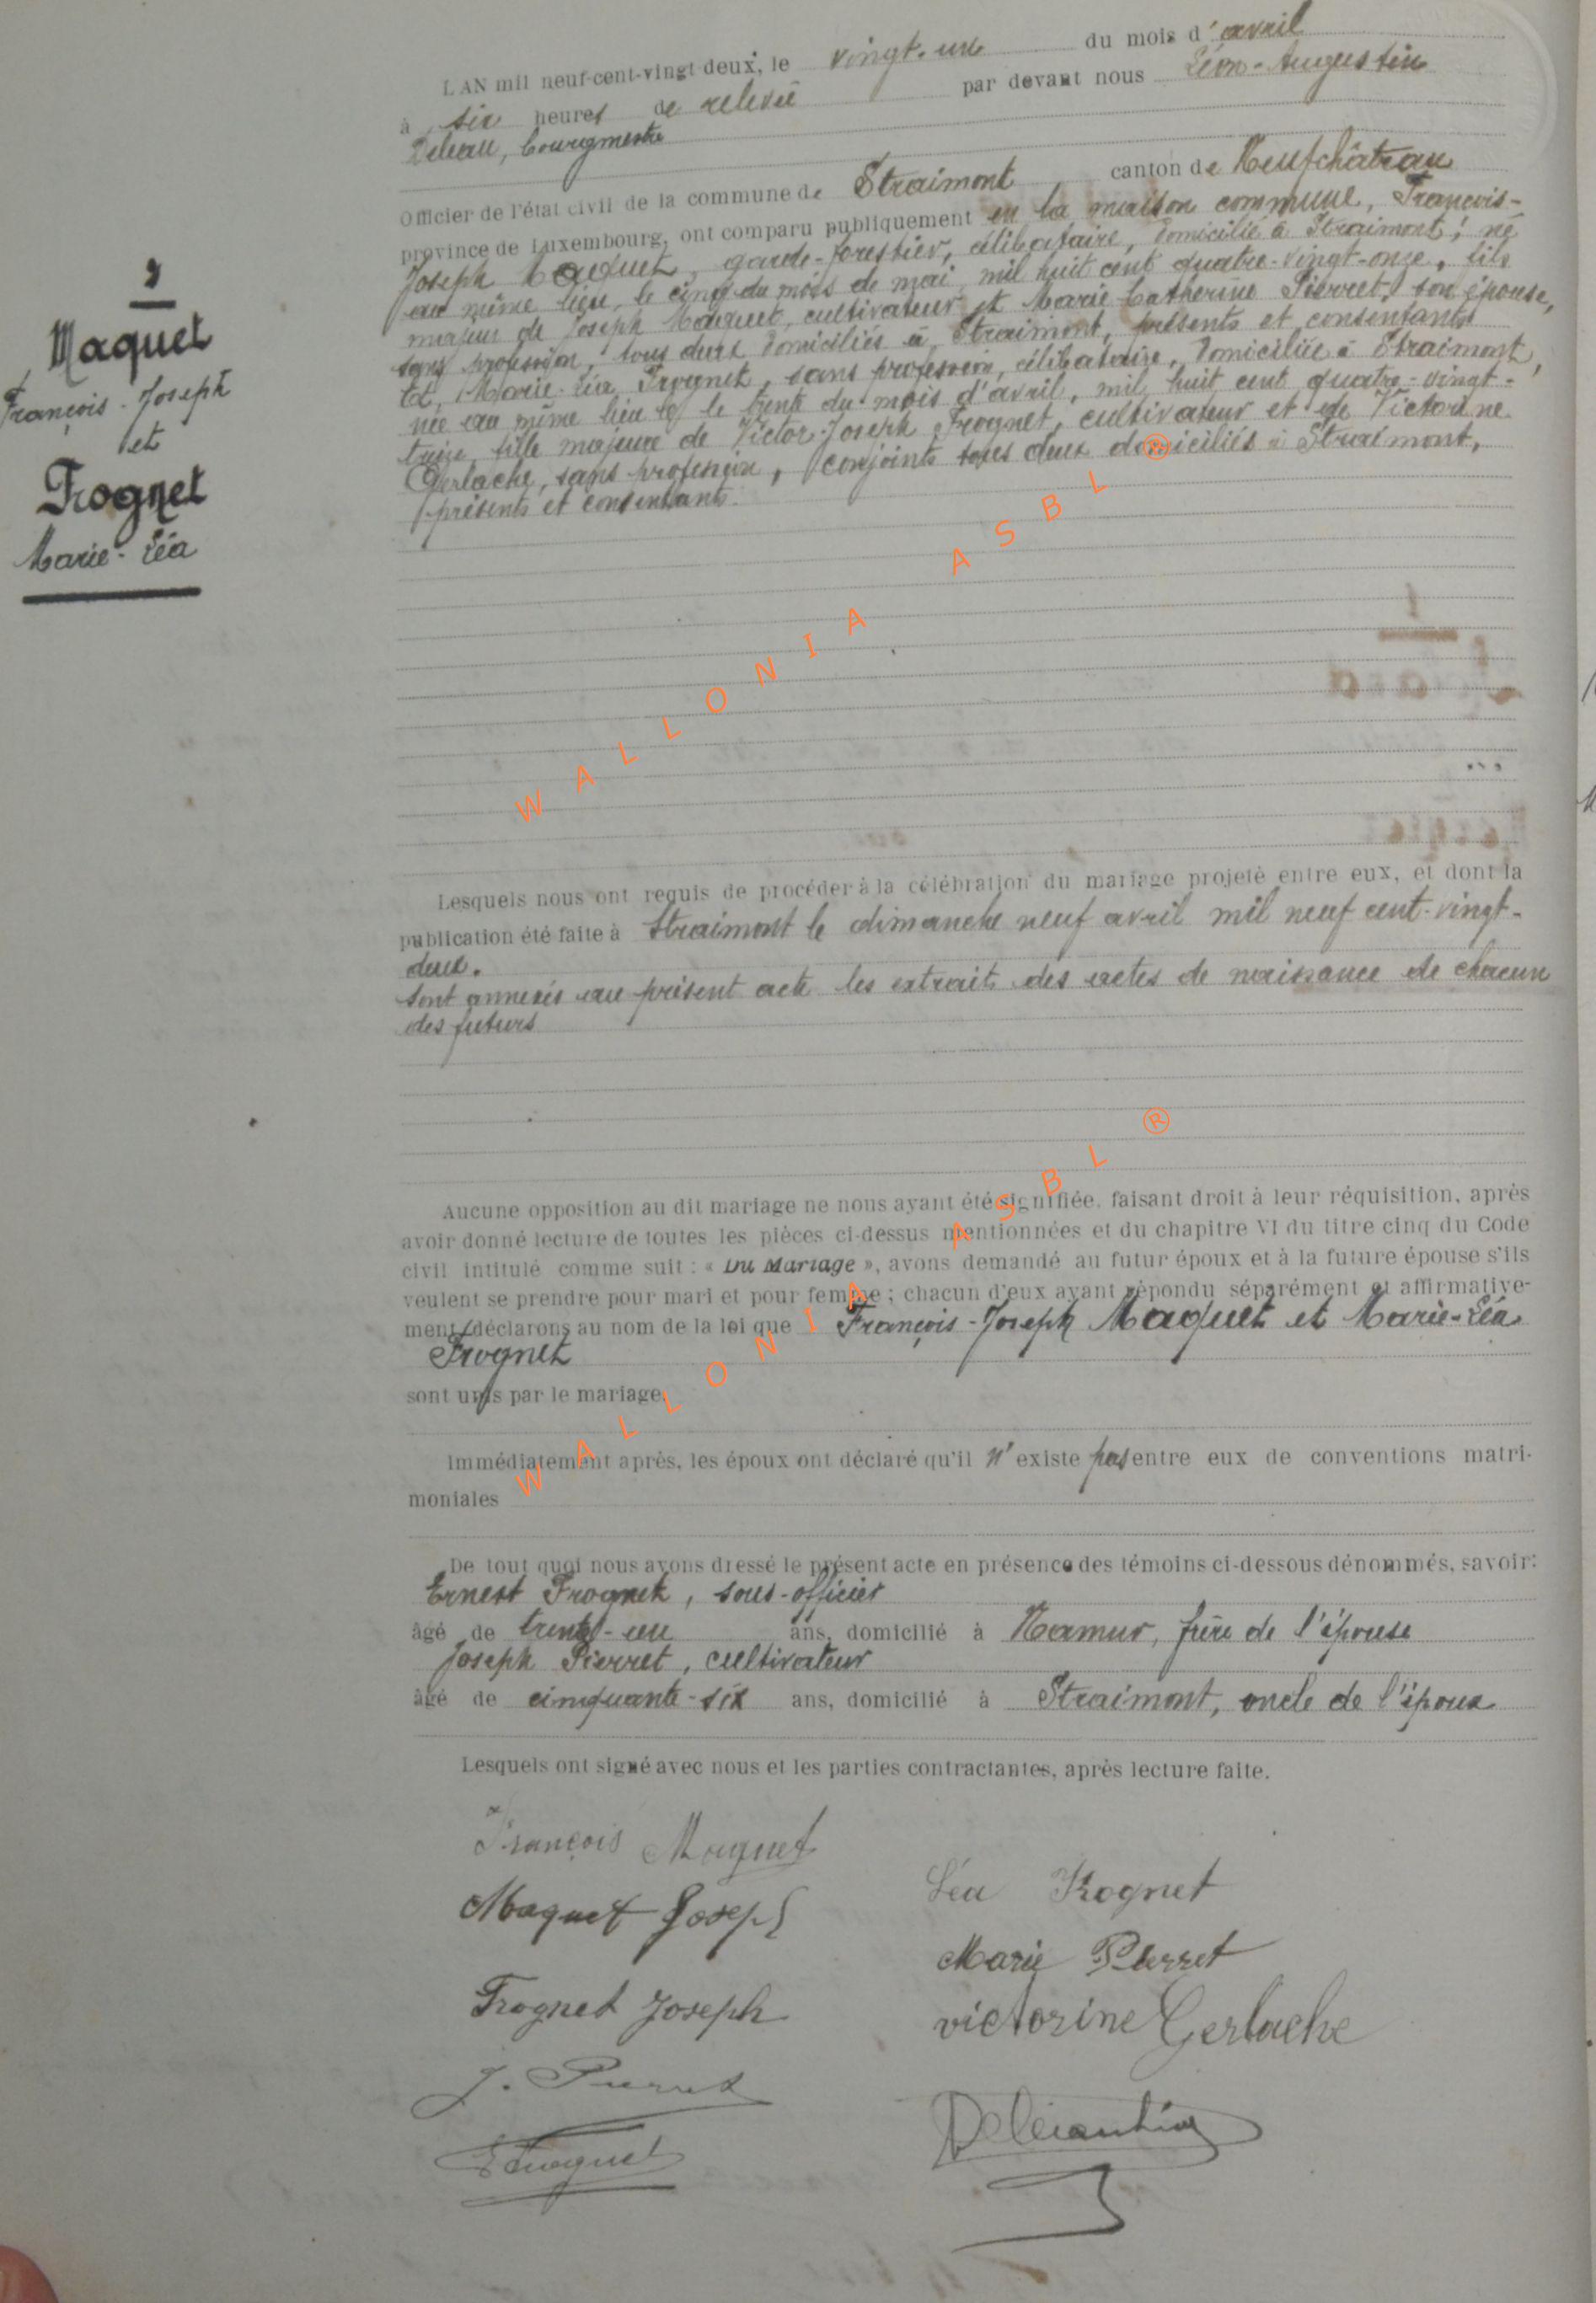 2
Maquet
François-Joseph
et
Frognet
Marie-Léa
L'AN mil neuf-cent-vingt deux, le vingt-un du mois d'avril
à six heures de relevée par devant nous Léon-Augustin
bourgmestre
Officier de l'état civil de la commune de Straimont canton de Neufchâteau
province de Luxembourg, ont comparu publiquement en la maison commune, François-
Joseph Maquet, garde-forestier, célibataire, domicilié à Straimont, né
au même lieu, le cinq du mois de mai mil huit cent quatre-vingt-onze, fils
majeur de Joseph Maquet, cultivateur et Marie Catherine Pierret, son épouse,
sans profession, tous deux domiciliés à Straimont, présents et consentants
et, Marie-Léa Frognet, sans profession, célibataire, domiciliée à Straimont,
née au même lieu le trente du mois d'avril, mil huit cent quatre-vingt-
treize, fille majeure de Victor-Joseph Frognet, cultivateur et de Victorine
Gerlache, sans profession, conjoints tous deux domiciliés à Straimont,
présents et consentants.
WALLONIA ASBL ®
Lesquels nous ont requis de procéder à la célébration du mariage projeté entre eux, et dont la
publication été faite à Straimont le dimanche neuf avril mil neuf cent-vingt-
deux.
Sont annexés au présent acte les extraits des actes de naissance de chacun
des futurs
Aucune opposition au dit mariage ne nous ayant été signifiée, faisant droit à leur réquisition, après
avoir donné lecture de toutes les pièces ci-dessus mentionnées et du chapitre VI du titre cinq du Code
civil intitulé comme suit : « Du Mariage », avons demandé au futur époux et à la future épouse s'ils
veulent se prendre pour mari et pour femme ; chacun d'eux ayant répondu séparément et affirmative-
ment, déclarons au nom de la loi que François-Joseph Maquet et Marie-Léa
Frognet
sont unis par le mariage.
WALLONIA ASBL ®
Immédiatement après, les époux ont déclaré qu'il n'existe pas entre eux de conventions matri-
moniales
De tout quoi nous avons dressé le présent acte en présence des témoins ci-dessous dénommés, savoir:
Ernest Frognet, sous-officier
âgé de trente-un ans, domicilié à Namur, frère de l'épouse
Joseph Pierret, cultivateur
âgé de cinquante-six ans, domicilié à Straimont, oncle de l'époux
Lesquels ont signé avec nous et les parties contractantes, après lecture faite.
François Maquet
Léa Frognet
Maquet Joseph
Marie Pierret
Frognet Joseph
victorine Gerlache
J. Pierret
E Frognet